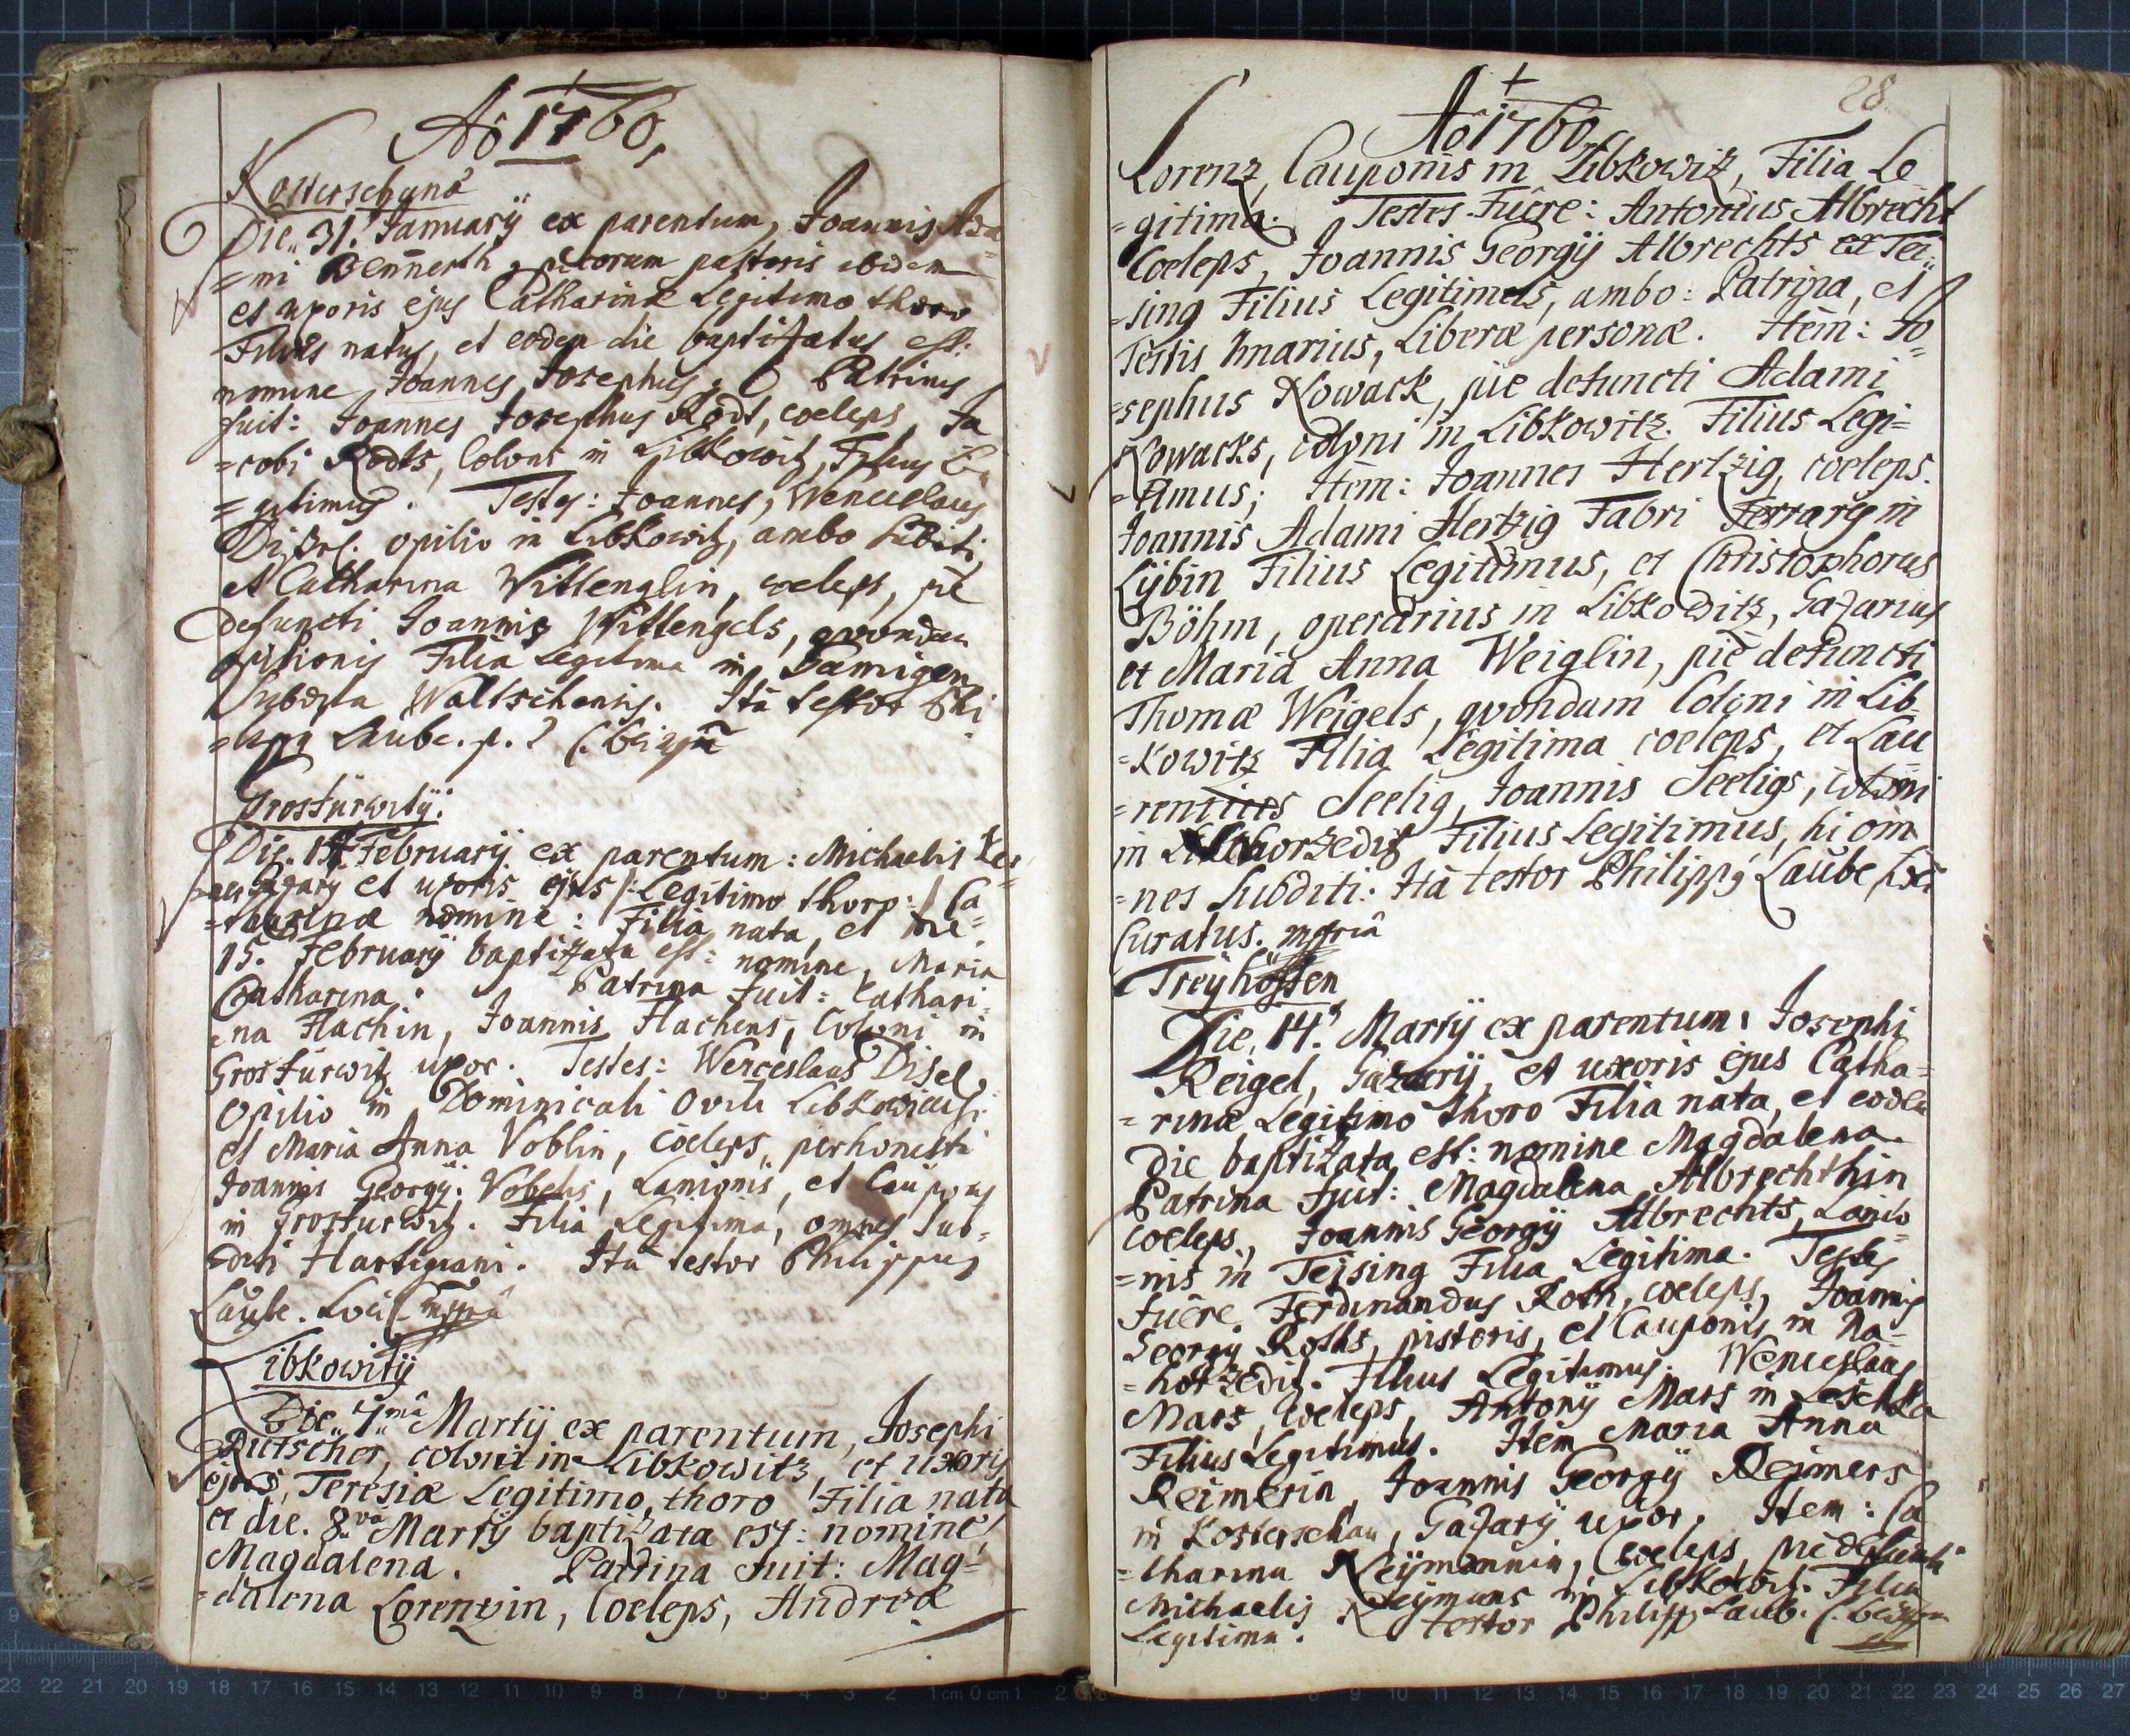 Ao 1760,
Die 31. January ex parentum, Joannis Ada
=mi Bennerth, pecorum pastoris ibidem
et uxoris ejus Catharinæ Legitimo thoro
Filius natus, et eodem die baptizatus est:
nomine Joannes Josephus. Patrinus
fuit: Joannes Josephus Rödt, coeleps, Ja
=cobi Rödts, Coloni in Libkowitz, Filius Le
=gitimus. Testes: Joannes, Wenceslaus
opilio in Libkowitz, ambo
et Catharina Wittenglin, coeleps, piè
defuncti Joannis Wittengels, qvondam
opilionis Filia Legitima in
Subdita Waltschensis. Ità testor Phi
=lippus Laube. p.
Grosfürwitÿ:
Die. 14. February ex parentum: Michaelis
et uxoris ejus /: Legitimo thoro :/ Ca
=tharinæ nomine: Filia nata, et die
15. February baptizata est: nomine, Maria
Catharina. Patrina fuit: Cathari
=na Hachin, Joannis Hachens, Coloni in
Grosfürwitz uxor. Testes: Wenceslaus Disel,
Opilio in Dominicali Ovili Libkowicensi
et Maria Anna Voblin, coeleps, perhonesti
Joannis Georgÿ Vobels, Lanionis, et Cauponis
in Grosfurwitz. Filia Legitima, omnes Sub=
=diti Hartigiani. Ità testor Philippus
Laube. Loci C. mpria
Libkowitÿ
Die 7mâ Martÿ ex parentum, Josephi
Rutscher, coloni in Libkowitz, et uxoris
ejus, Teresiæ Legitimo thoro Filia nata
et die. 8va Martÿ baptizata est: nomine
Magdalena. Patrina fuit: Mag=
=dalena Lorenzin, Coeleps, Andreæ
28
Ao 1760
Lorenz, Cauponis in Libkowitz, Filia Le
=gitima. Testes Fuêre: Antonius Albrecht
Coeleps, Joannis Georgÿ Albrechts ex Tei=
=sing Filius Legitimus, ambo: Patrina, et
Testis Imarius, Liberæ personæ. Item: Jo=
=sephus Nowack, piè defuncti Adami
Nowacks, coloni in Libkowitz. Filius Legi=
=timus; Item: Joannes Hertzig, coeleps.
Joannis Adami Hertzig Fabri Ferrarÿ in
Lÿbin Filius Legitimus, et Christophorus
Böhm, operarius in Libkowitz, Gazarius
et Maria Anna Weiglin, piè defuncti
Thomæ Weigels, qvondam Coloni in Lib
=kowitz Filia Legitima coeleps, et Lau
=rentius Seelig, Joannis Seeligs, coloni
in Nahorzeditz Filius Legitimus, hi om
=nes Subditi. Ità testor Philippus Laube Loci
Curatus. mpriâ
Treÿhöffen
Die, 14. Martÿ ex parentum: Josephi
Reigel, Gazarÿ, et uxoris ejus Catha=
=rinæ Legitimo thoro Filia nata, et eodem
Die baptizata est: nomine Magdalena.
Patrina fuit: Magdalena Albrechthin
coeleps, Joannis Georgÿ Albrechts, Lanio
=nis in Teising Filia Legitima. Testes
fuêre Ferdinandus Roth, coeleps, Joannis
Georgÿ Roths, pistoris, et Cauponis in Na=
=horzeditz. Filius Legitimus. Wenceslaus
Mars, coeleps, Antonÿ Mars in Leschka
Filius Legitimus. Item Maria Anna
Reimerin, Joannis Georgÿ Reimers
in Kosterschan, Gazarÿ uxor, Item: Ca
=tharina Neÿmannin, Coeleps, piè defuncti
Michaelis Neÿmans in Libkowitz. Filia
Legitima. testor Philipp Laub.